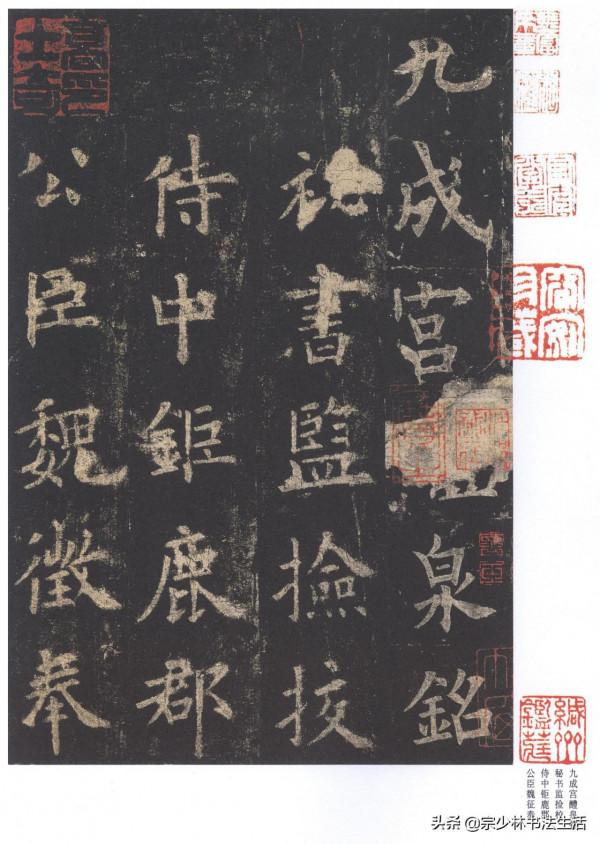 九成宫泉銘
秘書監撿挍
侍中鉅鹿郡
公臣魏徵奉
九成宫醴泉
秘书监检校
侍中钜鹿郡
公臣魏征奉
头条 @宗少林书法生活